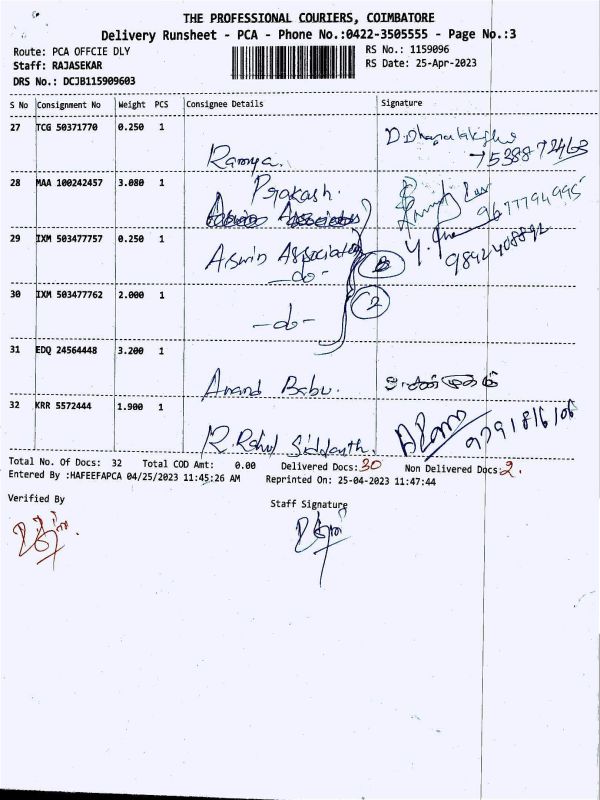 THE PROFESSIONAL COURIERS, COIMBATORE
Delivery Runsheet - PCA - Phone No.:0422-3505555 - Page No.:3
Route: PCA OFFCIE DLY
RS No.: 1159096
Staff: RAJASEKAR
RS Date: 25-Apr-2023
DRS No.: DCJB115909603
S No Consignment No Weight PCS Consignee Details Signature
27 TCG 50371770 0.250 1
Ramya.
7538872463
28 MAA 100242457 3.080 1
Prakash.
9677794995
29 IXM 503477757 0.250 1
Aswin Associates
9842408892
-do-
30 IXM 503477762 2.000 1
2
-do-
31 EDQ 24564448 3.200 1
Anand Babu.
32 KRR 5572444 1.900 1
R. Rahul Siddarth.
Total No. Of Docs: 32 Total COD Amt: 0.00 Delivered Docs: 30 Non Delivered Docs: 2.
Entered By :HAFEEFAPCA 04/25/2023 11:45:26 AM Reprinted On: 25-04-2023 11:47:44
Verified By
Staff Signature